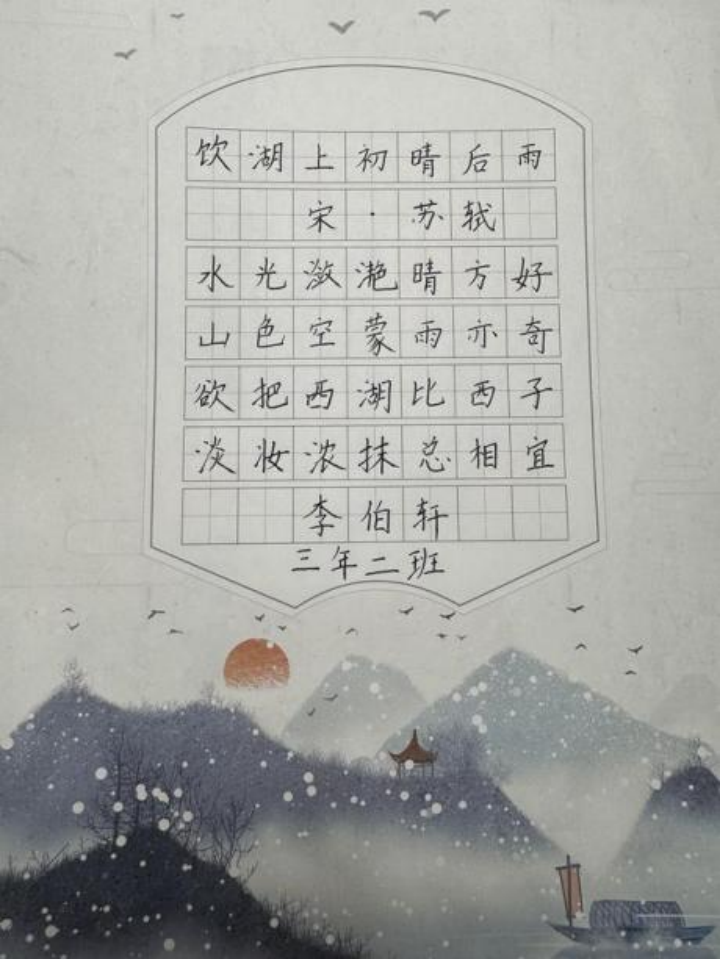 饮湖上初晴后雨
宋·苏轼
水光潋滟晴方好
山色空蒙雨亦奇
欲把西湖比西子
淡妆浓抹总相宜
李伯轩
三年二班